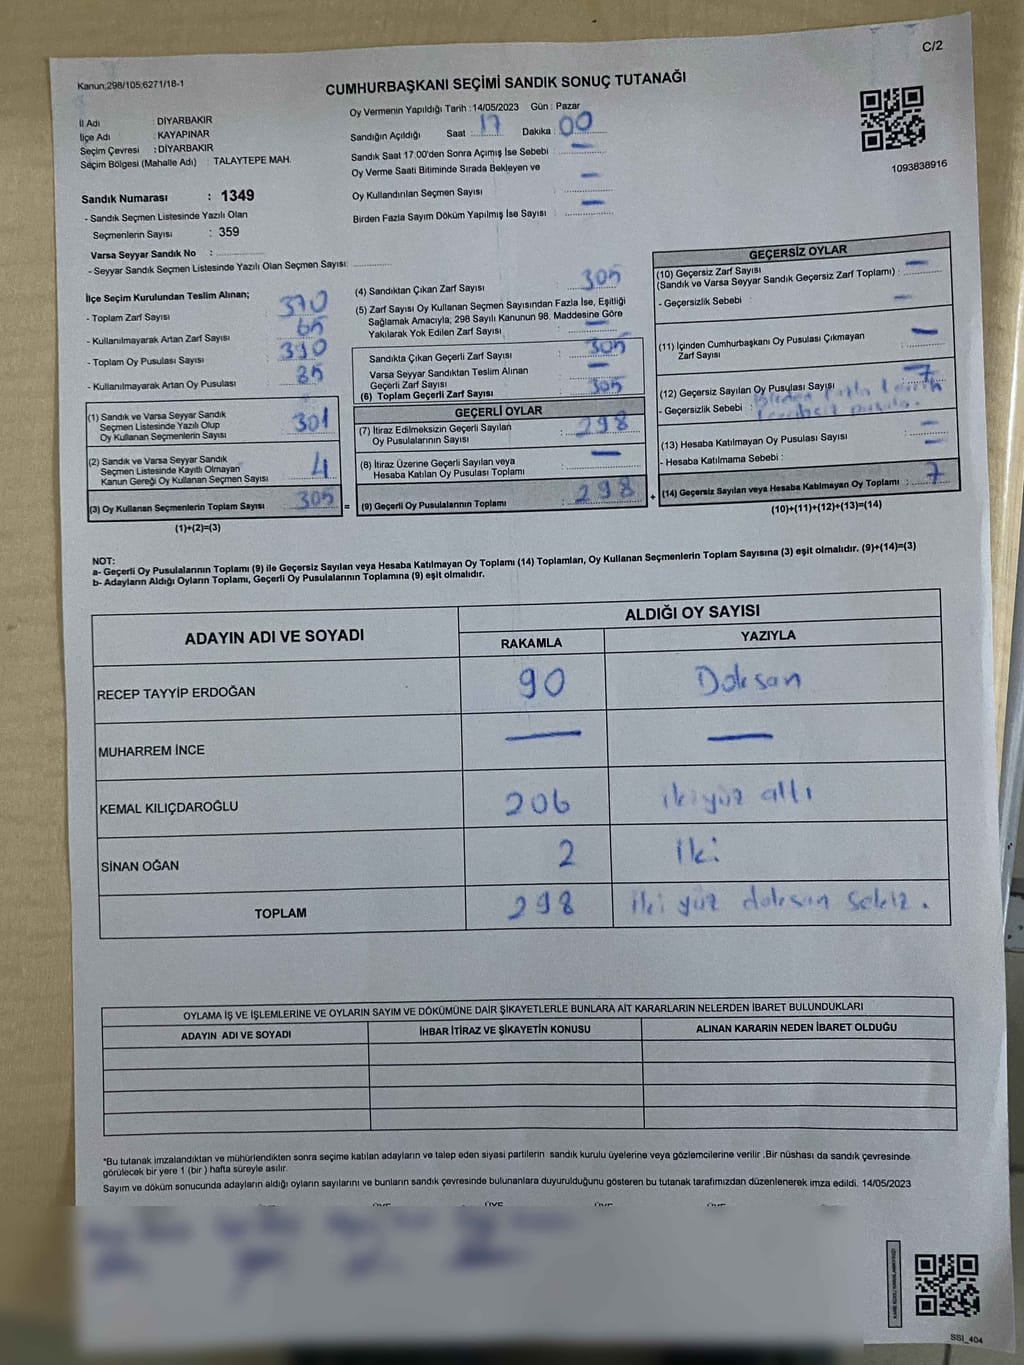 C/2
Kanun:298/105;6271/18-1
CUMHURBAŞKANI SEÇİMİ SANDIK SONUÇ TUTANAĞI
İl Adı : DİYARBAKIR
İlçe Adı : KAYAPINAR
Seçim Çevresi : DİYARBAKIR
Seçim Bölgesi (Mahalle Adı) : TALAYTEPE MAH.
Sandık Numarası : 1349
- Sandık Seçmen Listesinde Yazılı Olan
Seçmenlerin Sayısı : 359
Varsa Seyyar Sandık No :
- Seyyar Sandık Seçmen Listesinde Yazılı Olan Seçmen Sayısı:
Oy Vermenin Yapıldığı Tarih : 14/05/2023 Gün : Pazar
Sandığın Açıldığı Saat 17 Dakika : 00
Sandık Saat 17:00'den Sonra Açımış İse Sebebi : —
Oy Verme Saati Bitiminde Sırada Bekleyen ve
Oy Kullandırılan Seçmen Sayısı : —
Birden Fazla Sayım Döküm Yapılmış İse Sayısı : —
1093838916
İlçe Seçim Kurulundan Teslim Alınan;
- Toplam Zarf Sayısı : 370
- Kullanılmayarak Artan Zarf Sayısı : 65
- Toplam Oy Pusulası Sayısı : 390
- Kullanılmayarak Artan Oy Pusulası : 85
(1) Sandık ve Varsa Seyyar Sandık
Seçmen Listesinde Yazılı Olup
Oy Kullanan Seçmenlerin Sayısı : 301
(2) Sandık ve Varsa Seyyar Sandık
Seçmen Listesinde Kayıtlı Olmayan
Kanun Gereği Oy Kullanan Seçmen Sayısı : 4
(3) Oy Kullanan Seçmenlerin Toplam Sayısı : 305
(1)+(2)=(3)
=
(4) Sandıktan Çıkan Zarf Sayısı : 305
(5) Zarf Sayısı Oy Kullanan Seçmen Sayısından Fazla İse, Eşitliği
Sağlamak Amacıyla; 298 Sayılı Kanunun 98. Maddesine Göre
Yakılarak Yok Edilen Zarf Sayısı : —
Sandıkta Çıkan Geçerli Zarf Sayısı : 305
Varsa Seyyar Sandıktan Teslim Alınan
Geçerli Zarf Sayısı : —
(6) Toplam Geçerli Zarf Sayısı : 305
GEÇERLİ OYLAR
(7) İtiraz Edilmeksizin Geçerli Sayılan
Oy Pusulalarının Sayısı : 298
(8) İtiraz Üzerine Geçerli Sayılan veya
Hesaba Katılan Oy Pusulası Toplamı : —
(9) Geçerli Oy Pusulalarının Toplamı : 298
+
GEÇERSİZ OYLAR
(10) Geçersiz Zarf Sayısı
(Sandık ve Varsa Seyyar Sandık Geçersiz Zarf Toplamı) : —
- Geçersizlik Sebebi : —
(11) İçinden Cumhurbaşkanı Oy Pusulası Çıkmayan
Zarf Sayısı : —
(12) Geçersiz Sayılan Oy Pusulası Sayısı : 7
- Geçersizlik Sebebi : Birden fazla tercih
(13) Hesaba Katılmayan Oy Pusulası Sayısı : —
- Hesaba Katılmama Sebebi : —
(14) Geçersiz Sayılan veya Hesaba Katılmayan Oy Toplamı : 7
(10)+(11)+(12)+(13)=(14)
NOT:
a- Geçerli Oy Pusulalarının Toplamı (9) ile Geçersiz Sayılan veya Hesaba Katılmayan Oy Toplamı (14) Toplamları, Oy Kullanan Seçmenlerin Toplam Sayısına (3) eşit olmalıdır. (9)+(14)=(3)
b- Adayların Aldığı Oyların Toplamı, Geçerli Oy Pusulalarının Toplamına (9) eşit olmalıdır.
ADAYIN ADI VE SOYADI
ALDIĞI OY SAYISI
RAKAMLA YAZIYLA
RECEP TAYYİP ERDOĞAN 90 Doksan
MUHARREM İNCE — —
KEMAL KILIÇDAROĞLU 206 ikiyüz altı
SİNAN OĞAN 2 iki
TOPLAM 298 iki yüz doksan sekiz.
OYLAMA İŞ VE İŞLEMLERİNE VE OYLARIN SAYIM VE DÖKÜMÜNE DAİR ŞİKAYETLERLE BUNLARA AİT KARARLARIN NELERDEN İBARET BULUNDUKLARI
ADAYIN ADI VE SOYADI İHBAR İTİRAZ VE ŞİKAYETİN KONUSU ALINAN KARARIN NEDEN İBARET OLDUĞU
*Bu tutanak imzalandıktan ve mühürlendikten sonra seçime katılan adayların ve talep eden siyasi partilerin sandık kurulu üyelerine veya gözlemcilerine verilir .Bir nüshası da sandık çevresinde
görülecek bir yere 1 (bir ) hafta süreyle asılır.
Sayım ve döküm sonucunda adayların aldığı oyların sayılarını ve bunların sandık çevresinde bulunanlara duyurulduğunu gösteren bu tutanak tarafımızdan düzenlenerek imza edildi. 14/05/2023
ÜYE ÜYE ÜYE ÜYE
SSI_404